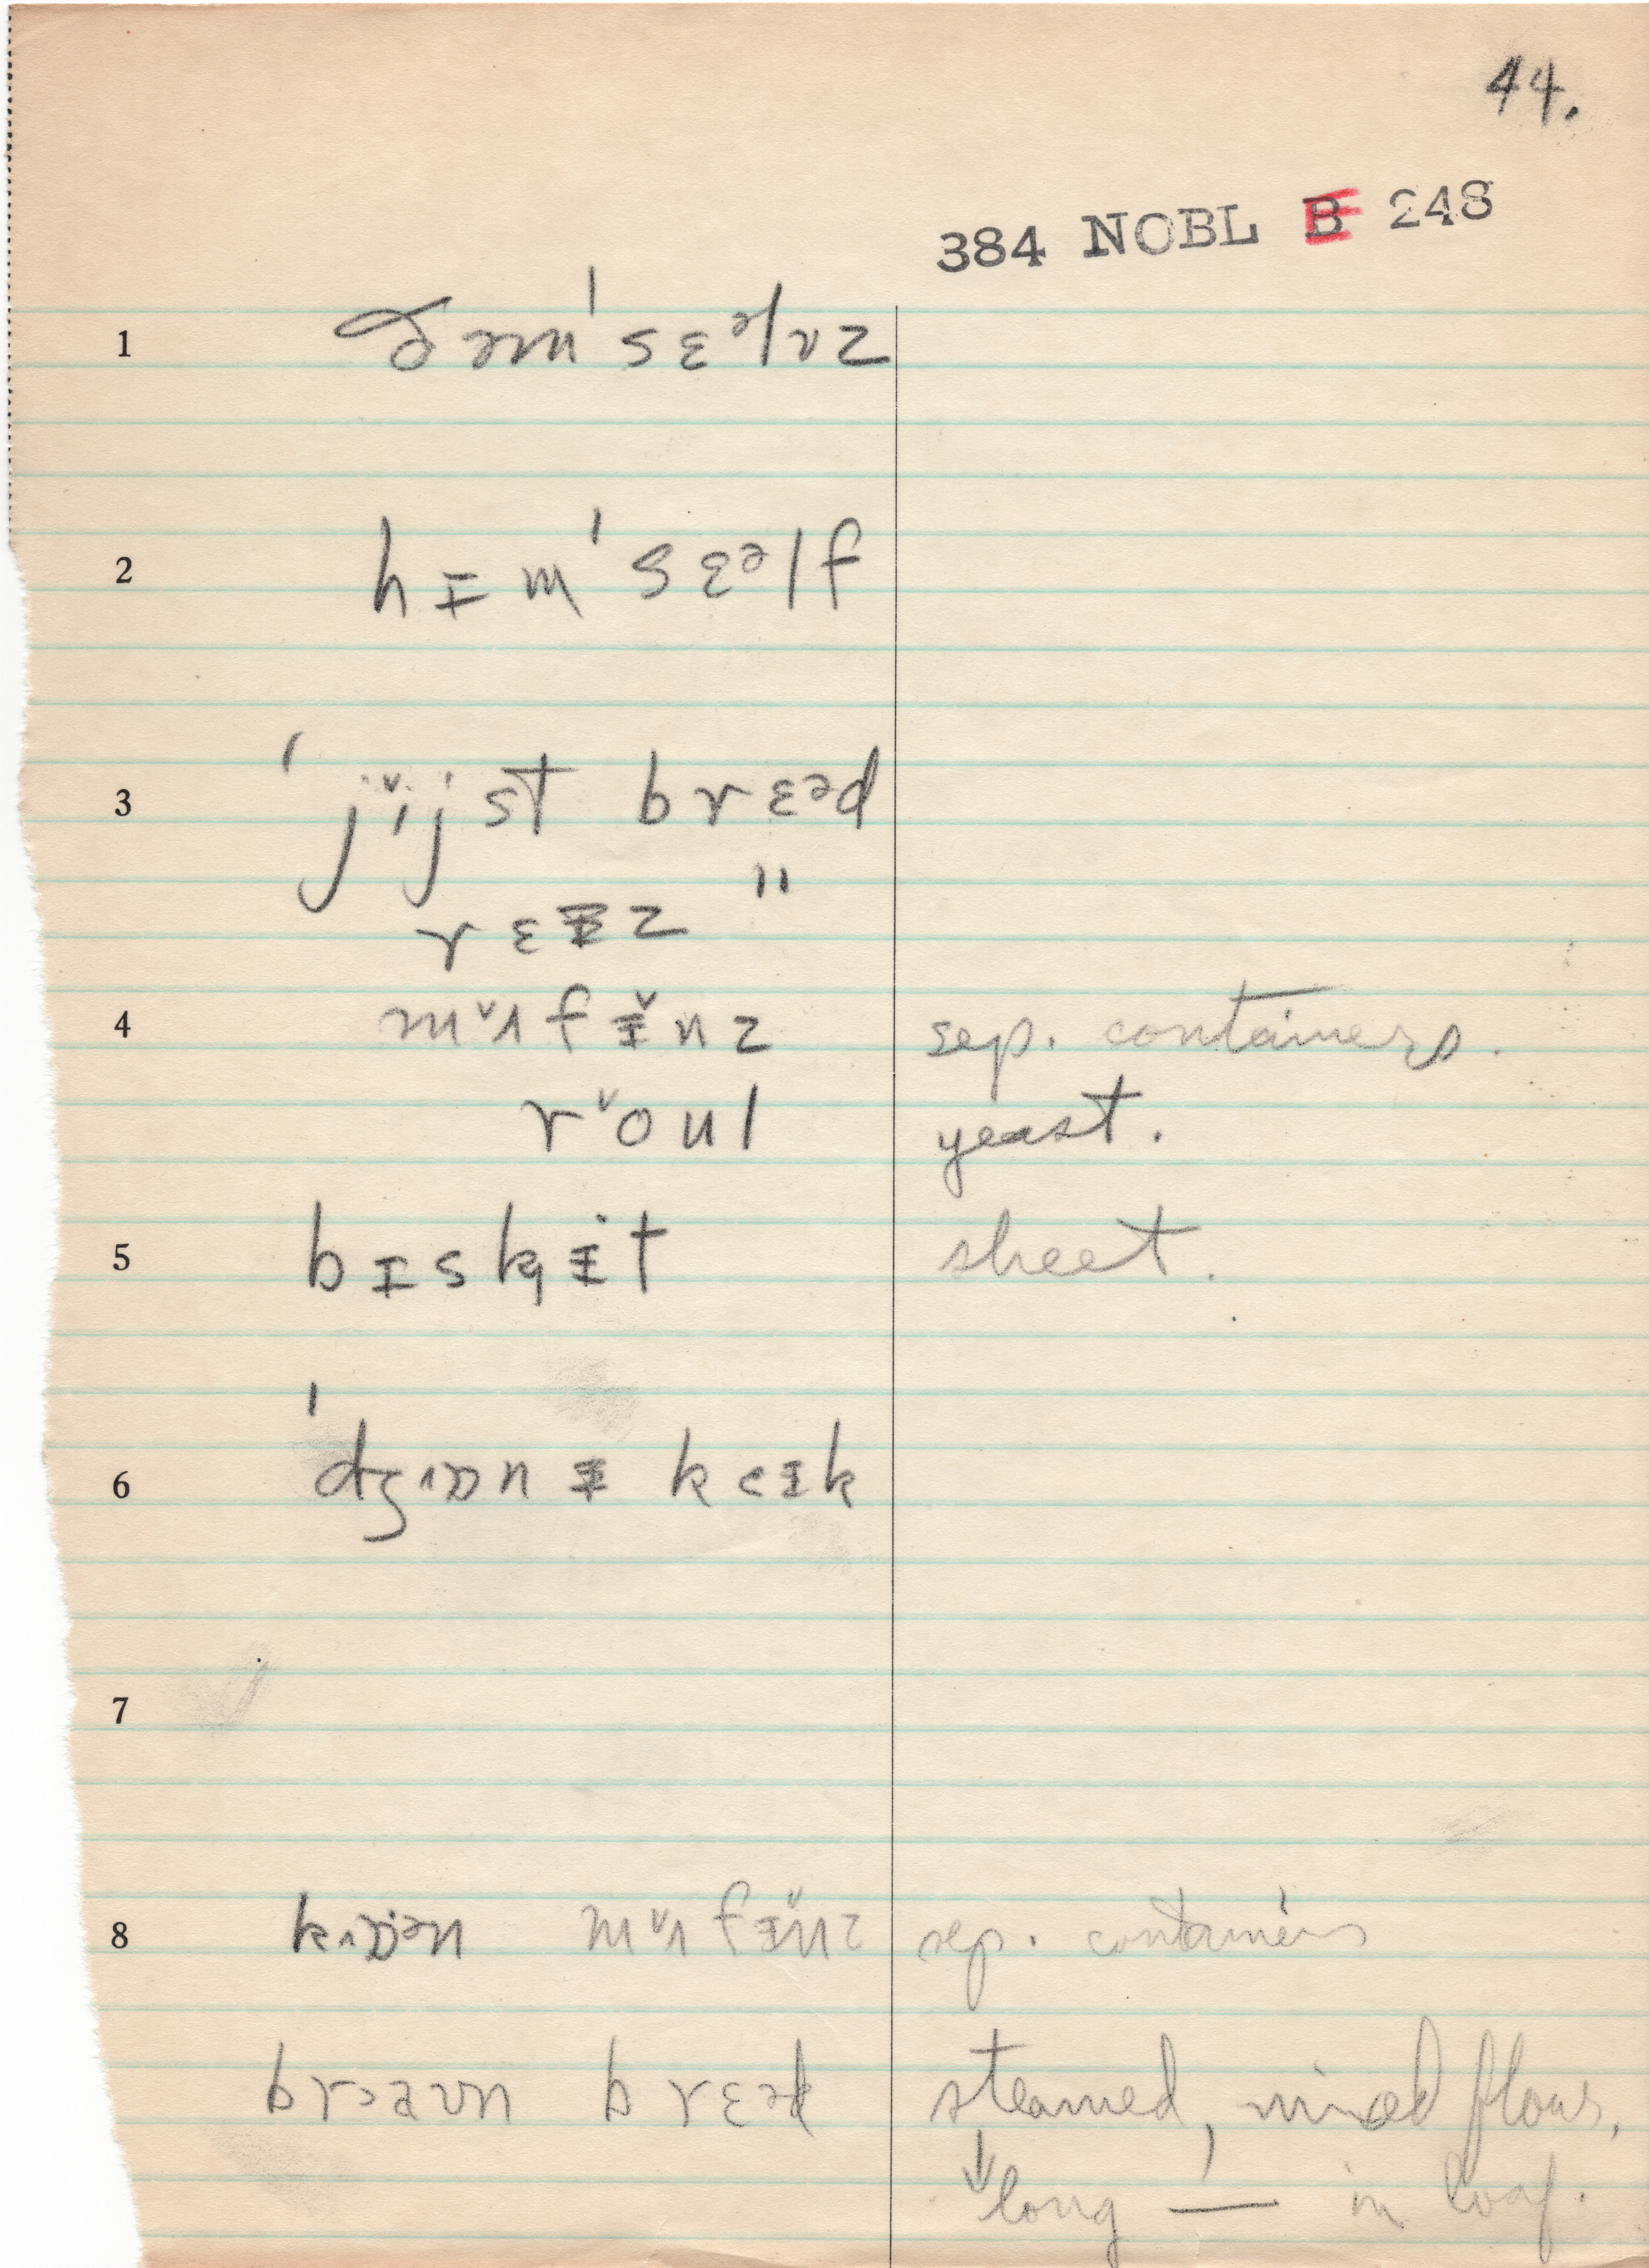 44.
384 NOBL B 248
1 ðəm'sɛᵊlvz
2 hɪm'sɛᵊlf
3 'jˇijst brɛᵊd
rɛɪz "
4 mˇʌfɪ̌nz sep. containers.
rˇoul yeast.
5 bɪskɪt sheet.
6 'dʒɒnɪ keɪk
7
8 mˇʌfɪ̌nz sep. containers
brɜaʊn brɛᵊd steamed, mixed flour,
long — in loaf.